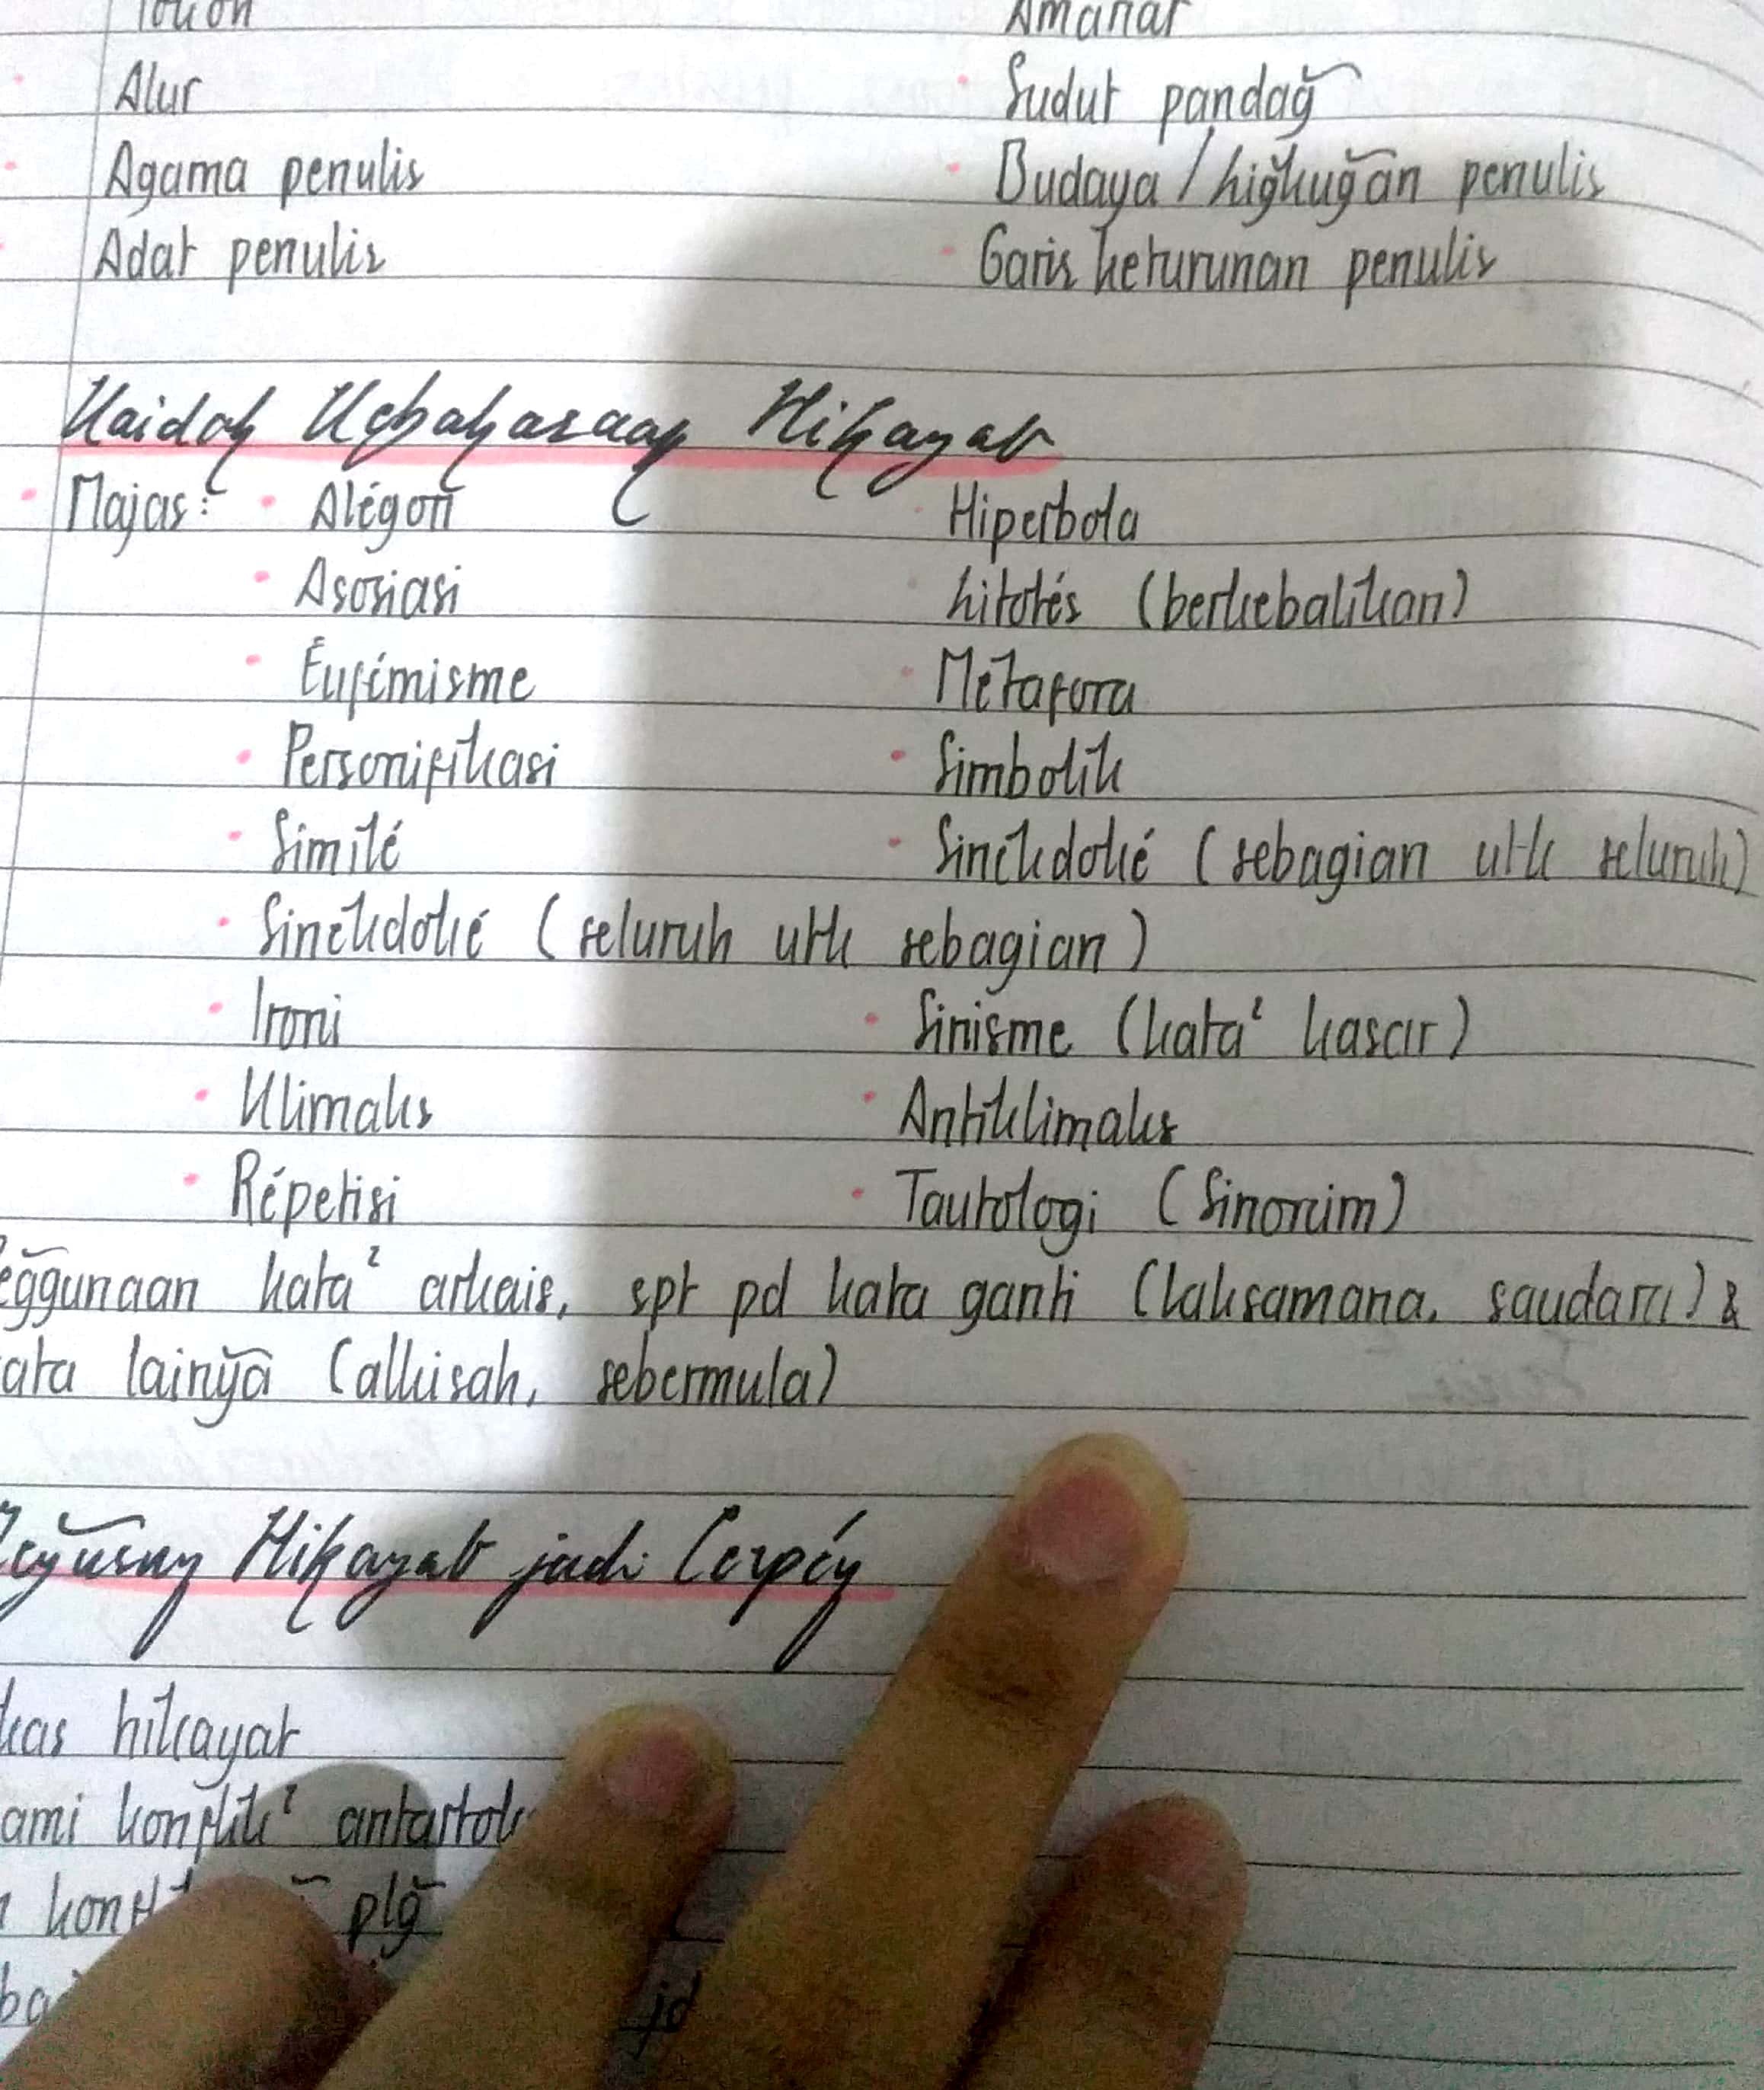 Amanat
Alur Sudut pandağ
Agama penulis Budaya / liğkuğan penulis
Adat penulis Garis keturunan penulis
Kaidah Kebahasaan Hikayat
Majas: Alégori Hiperbola
Asosiasi Litotés (berkebalikan)
Eufimisme Metafora
Personifikasi Simbolik
Similé Sinekdoké (sebagian utk seluruh)
Sinekdoké (seluruh utk sebagian)
Ironi Sinisme (kata² kasar)
Klimaks Antiklimaks
Répetisi Tautologi (Sinonim)
eğgunaan kata² arkais, spt pd kata ganti (laksamana, saudara) &
ata lainya (alkisah, sebermula)
Hikayat jadi Cerpén
kas hikayat
ami konflik² antartok
plğ
jd